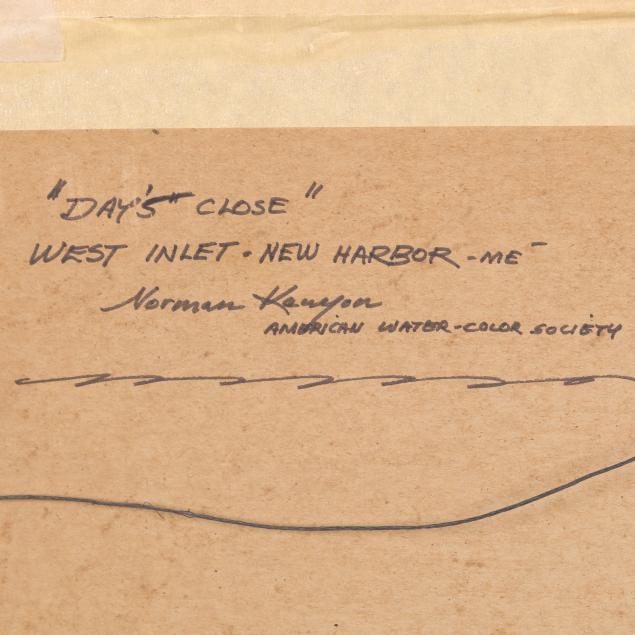 "DAY'S" CLOSE"
WEST INLET • NEW HARBOR - ME -
Norman Kenyon
AMERICAN WATER-COLOR SOCIETY